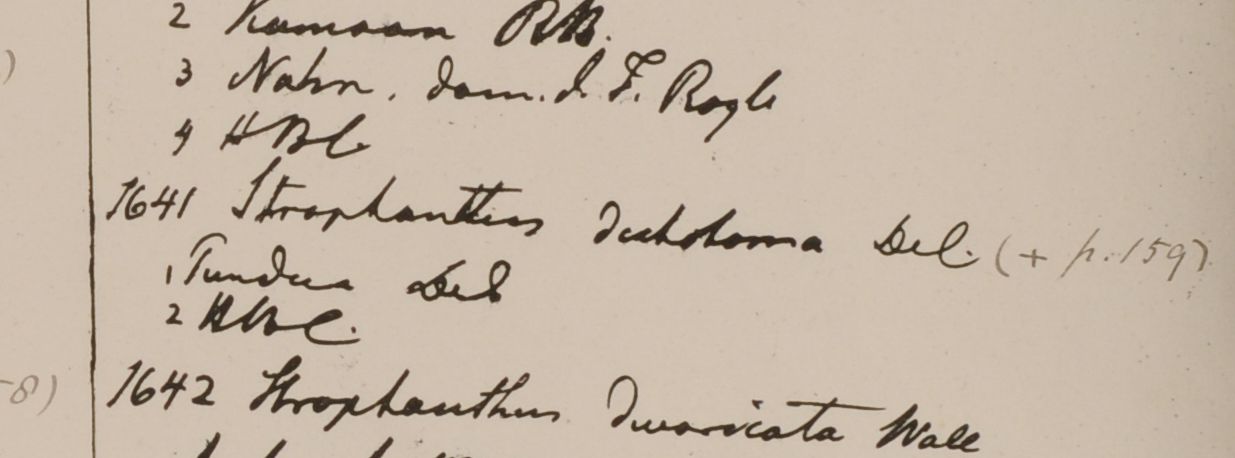 2 Kamaon RB.
3 Nahn. dom. J. F. Royle
4 HBC
1641 Strophanthus dichotoma Del. (+ p. 159)
1 Tundua Del
2 HBC.
-8)
1642 Strophanthus divaricata Wall